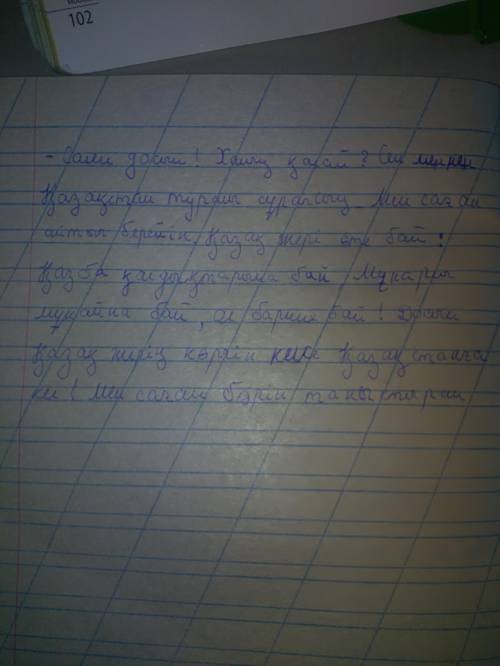 102
- Салем досым! Халың қалай? Сен менен
Қазақстан туралы сұрапсың. Мен саған
айтып берейін. Қазақ жері өте бай:
Қазба қалдықтарына бай, Мұнарлы
мұнайна бай, ол барине бай! Досым
Қазақ жерін көргін келсе Қазақстанға
кел! Мен саған бәрін таныстырам